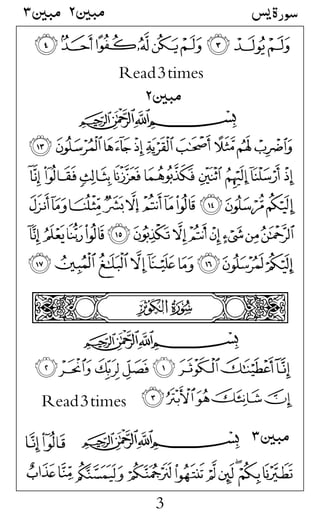 سورة يس مبين٢ مبين٣
وَلَمْ يُولَدْ ﴿٣﴾ وَلَمْ يَكُن لَّهُۥ كُفُوًا أَحَدٌۢ ﴿٤﴾
Read3times
مبين٢
بِسْمِ ٱللَّهِ ٱلرَّحْمَٰنِ ٱلرَّحِيمِ
وَٱضْرِبْ لَهُم مَّثَلًا أَصْحَٰبَ ٱلْقَرْيَةِ إِذْ جَآءَهَا ٱلْمُرْسَلُونَ ﴿١٣﴾
إِذْ أَرْسَلْنَآ إِلَيْهِمُ ٱثْنَيْنِ فَكَذَّبُوهُمَا فَعَزَّزْنَا بِثَالِثٍ فَقَالُوٓا۟ إِنَّآ
إِلَيْكُم مُّرْسَلُونَ ﴿١٤﴾ قَالُوا۟ مَآ أَنتُمْ إِلَّا بَشَرٌ مِّثْلُنَا وَمَآ أَنزَلَ
ٱلرَّحْمَٰنُ مِن شَىْءٍ إِنْ أَنتُمْ إِلَّا تَكْذِبُونَ ﴿١٥﴾ قَالُوا۟ رَبُّنَا يَعْلَمُ إِنَّآ
إِلَيْكُمْ لَمُرْسَلُونَ ﴿١٦﴾ وَمَا عَلَيْنَآ إِلَّا ٱلْبَلَٰغُ ٱلْمُبِينُ ﴿١٧﴾
سُورَةُ الْكَوْثَرِ
بِسْمِ ٱللَّهِ ٱلرَّحْمَٰنِ ٱلرَّحِيمِ
إِنَّآ أَعْطَيْنَٰكَ ٱلْكَوْثَرَ ﴿١﴾ فَصَلِّ لِرَبِّكَ وَٱنْحَرْ ﴿٢﴾
إِنَّ شَانِئَكَ هُوَ ٱلْأَبْتَرُ ﴿٣﴾ Read3times
مبين٣ بِسْمِ ٱللَّهِ ٱلرَّحْمَٰنِ ٱلرَّحِيمِ قَالُوٓا۟ إِنَّا
تَطَيَّرْنَا بِكُمْ ۖ لَئِن لَّمْ تَنتَهُوا۟ لَنَرْجُمَنَّكُمْ وَلَيَمَسَّنَّكُم مِّنَّا عَذَابٌ
3